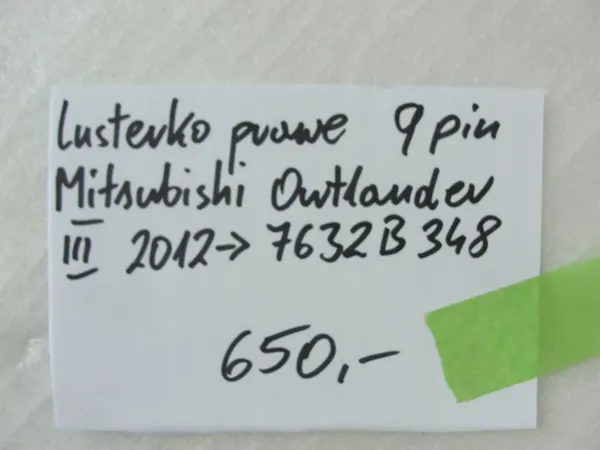 Lusterko prawe 9 pin
Mitsubishi Outlander
III 2012→ 7632B348
650,-